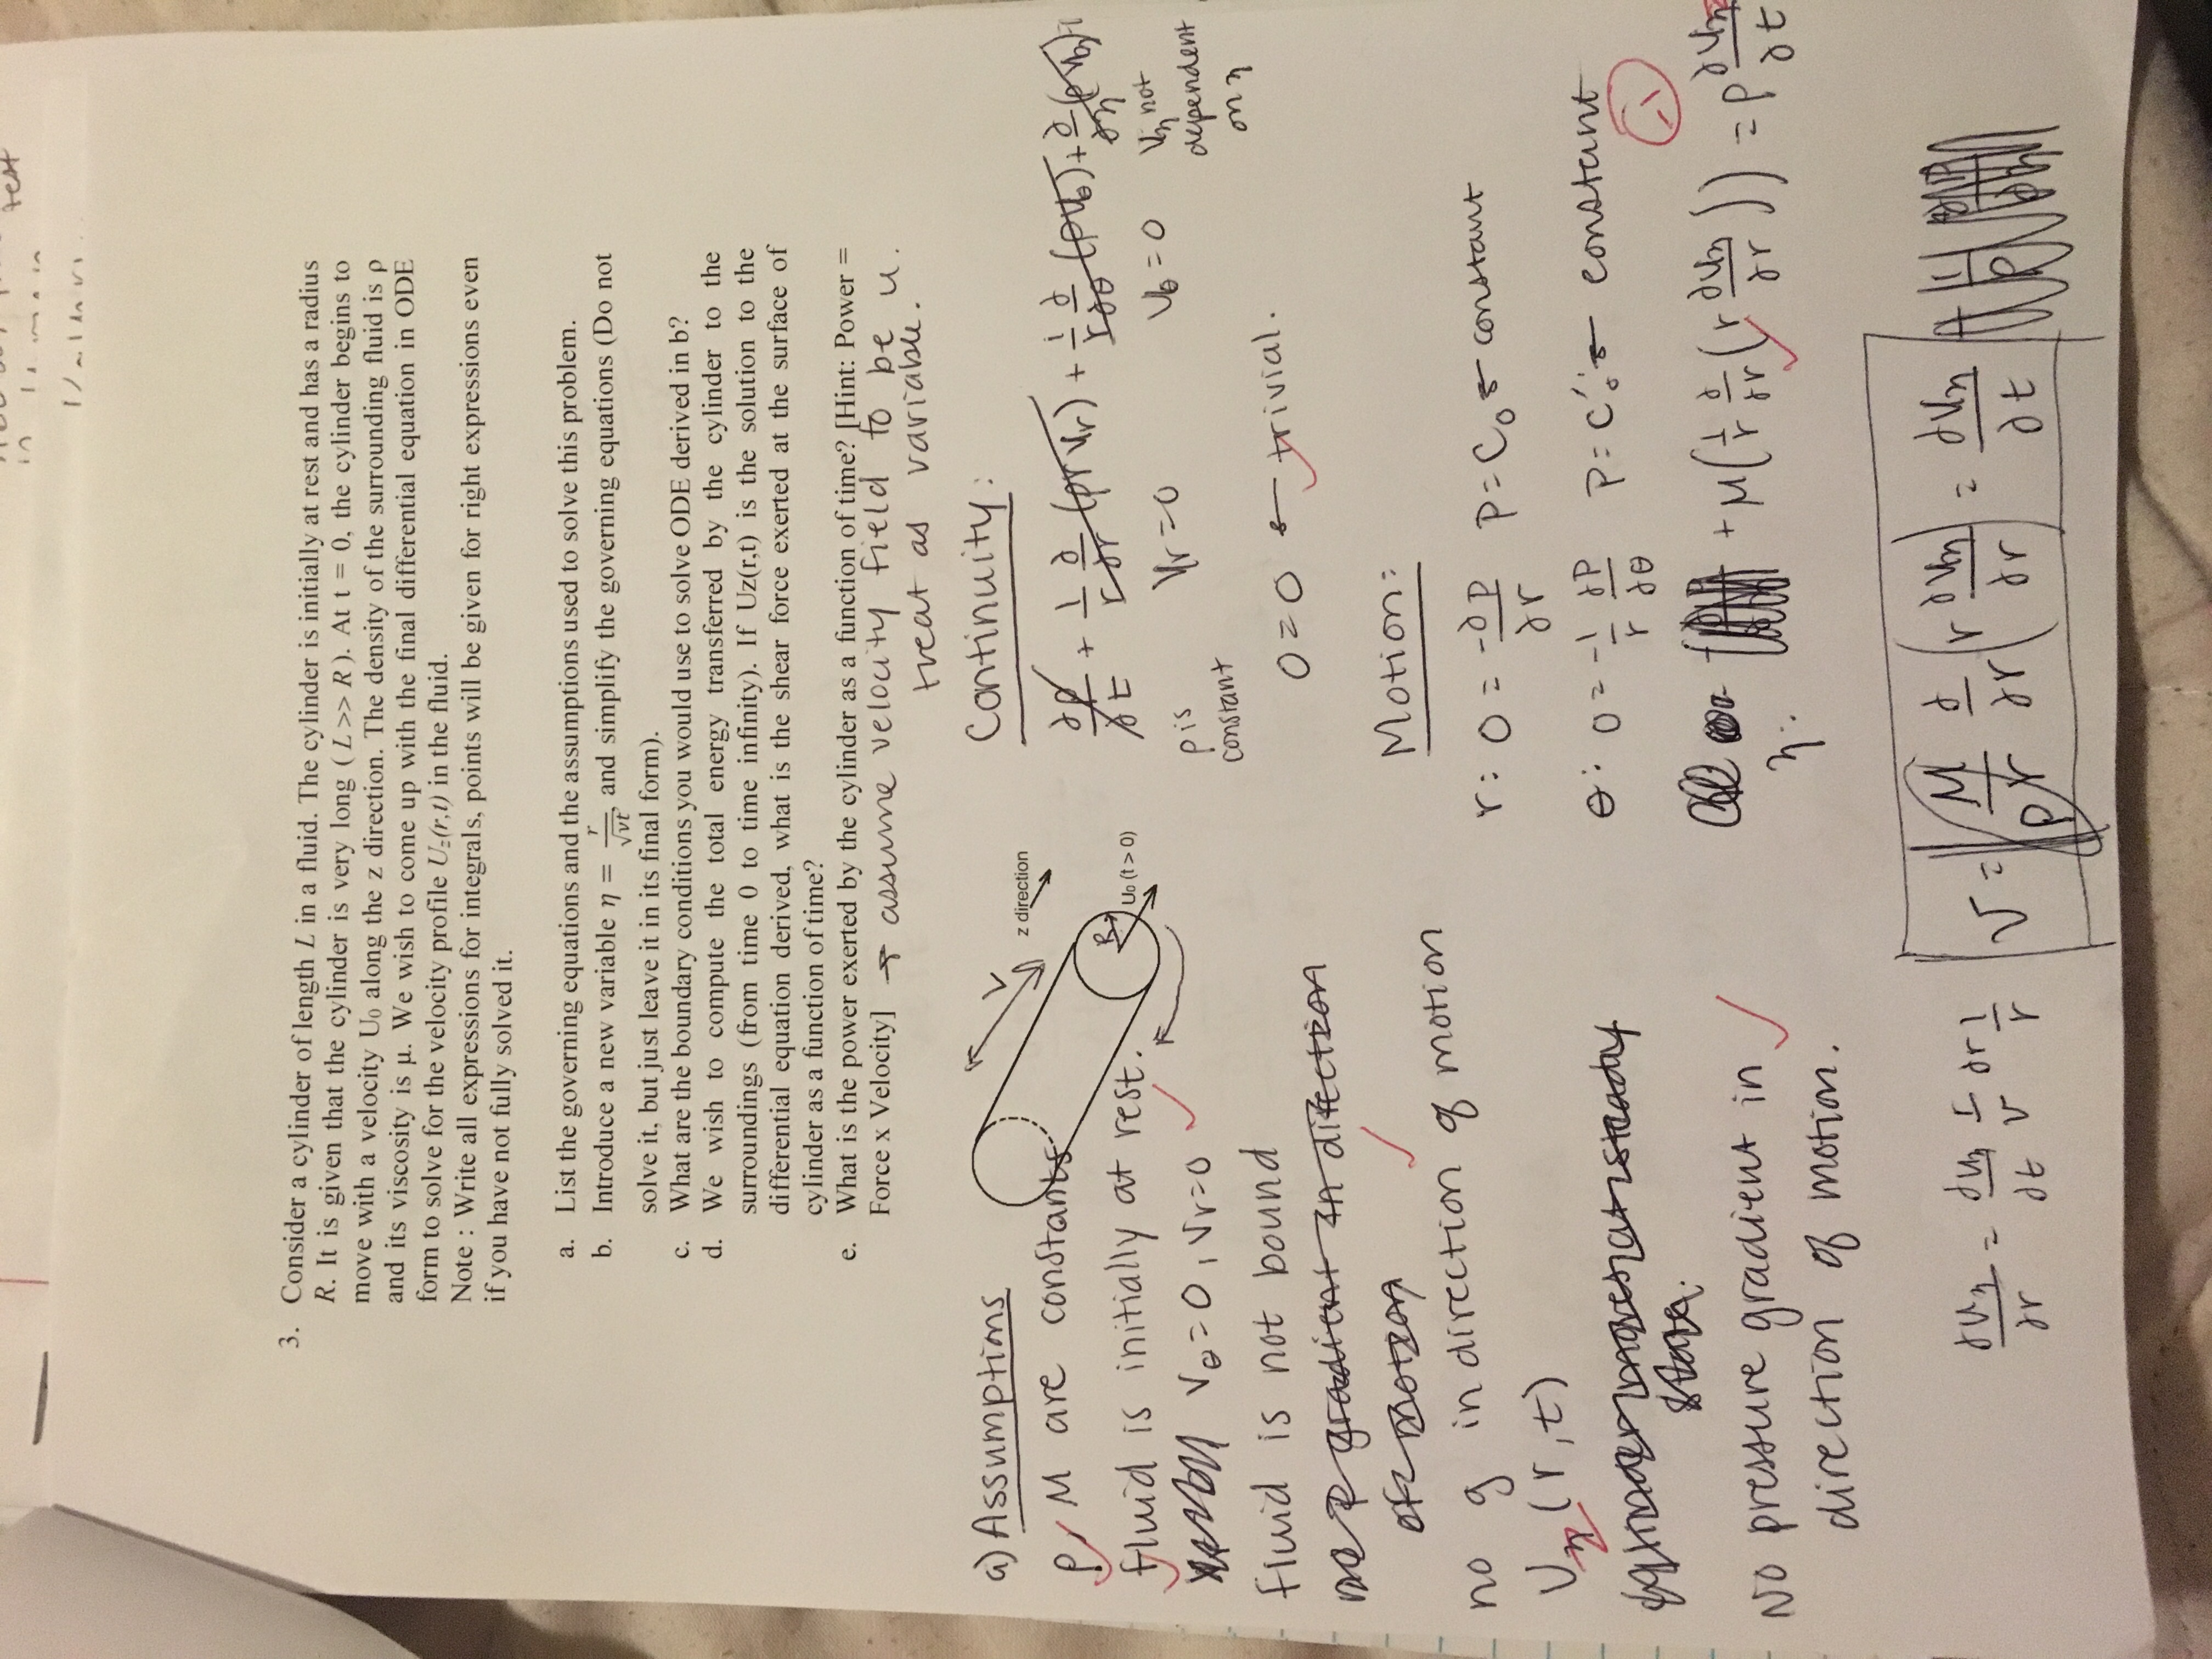 test
3. Consider a cylinder of length L in a fluid. The cylinder is initially at rest and has a radius
R. It is given that the cylinder is very long ( L >> R ). At t = 0, the cylinder begins to
move with a velocity U₀ along the z direction. The density of the surrounding fluid is ρ
and its viscosity is μ. We wish to come up with the final differential equation in ODE
form to solve for the velocity profile U_z(r,t) in the fluid.
Note : Write all expressions for integrals, points will be given for right expressions even
if you have not fully solved it.
a. List the governing equations and the assumptions used to solve this problem.
b. Introduce a new variable η = r/√νt, and simplify the governing equations (Do not
solve it, but just leave it in its final form).
c. What are the boundary conditions you would use to solve ODE derived in b?
d. We wish to compute the total energy transferred by the cylinder to the
surroundings (from time 0 to time infinity). If Uz(r,t) is the solution to the
differential equation derived, what is the shear force exerted at the surface of
cylinder as a function of time?
e. What is the power exerted by the cylinder as a function of time? [Hint: Power =
Force x Velocity] → assume velocity field to be u.
treat as variable.
a) Assumptions
ρ, M are constants
fluid is initially at rest.
V_θ = 0, V_r = 0
fluid is not bound
no P gradient in direction
of motion
no g in direction of motion
U_z (r,t)
cylinder moves at steady
state.
No pressure gradient in
direction of motion.
L
z direction
R
U₀ (t > 0)
Continuity:
∂ρ/∂t + 1/r ∂/∂r (ρr V_r) + 1/r ∂/∂θ (ρV_θ) + ∂/∂z (ρV_z)
ρ is constant
V_r = 0
V_θ = 0
V_z not dependent on z
0 = 0 ← trivial.
Motion:
r: 0 = -∂p/∂r P = C₀ ← constant
θ: 0 = -1/r ∂P/∂θ P = C₀' ← constant
-1
z: + M(1/r ∂/∂r (r ∂U_z/∂r)) = ρ ∂U_z/∂t
∂U_z/∂r = ∂U_z/∂t r/ν ∂r 1/r
ν = M/ρr ∂/∂r (r ∂U_z/∂r) = ∂U_z/∂t